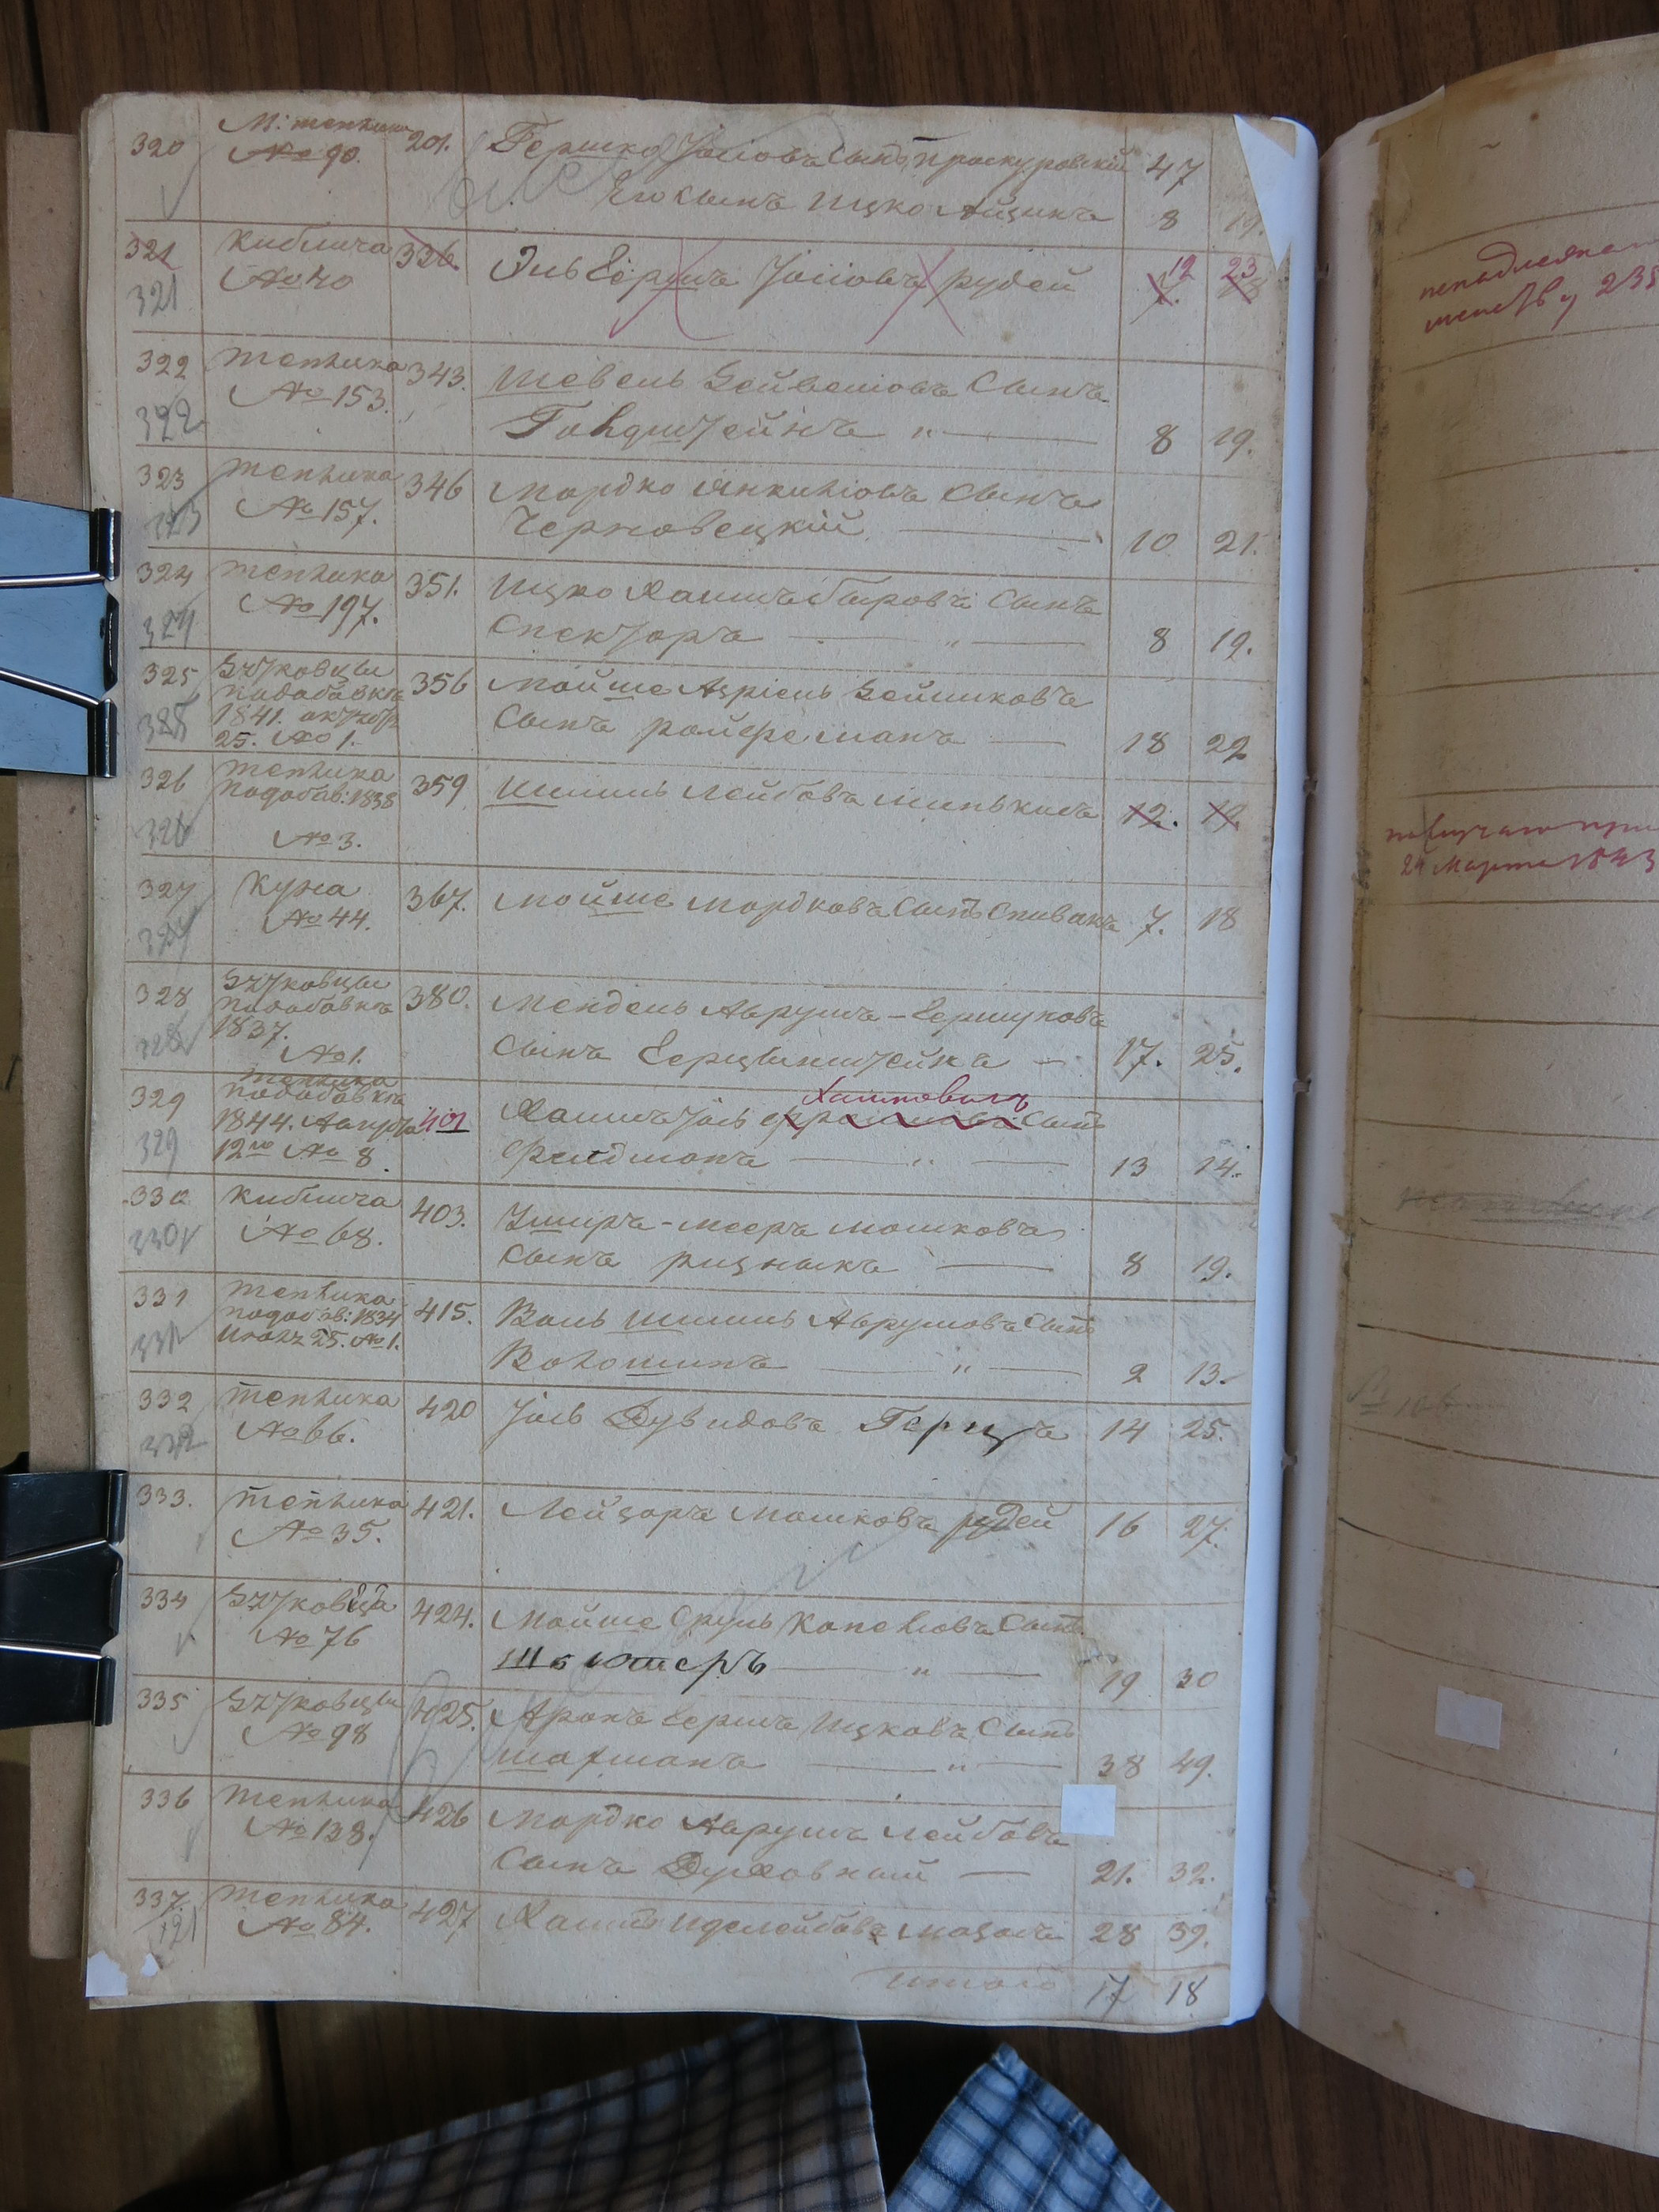 320 М: теплика № 90. 201. Гершко Јосiовъ Сынъ Проскуровскiй 47
Его сынъ Ицко Айзикъ 8 19.
321 Кублича № 40 336. Эль Гершъ Јосiовъ рудей 12 23
321
322 теплика № 153. 343. Шевель Зейвелiовъ Сынъ
322 Голдштейнъ „ 8 19.
323 теплика № 157. 346 Мордко Янкилiовъ Сынъ
323 Черновецкiй 10 21.
324 теплика № 197. 351. Ицко Хаимъ Беровъ Сынъ
324 Спекторъ „ 8 19.
325 Зятковцы подобавкъ 1841. октября 25. № 1. 356 Мойше Азрiель Зейликовъ
325 Сынъ ройферманъ 18 22
326 теплика подобав: 1838 № 3. 359 Шмиль Лейбовъ 12. 19.
326
327 Куна № 44. 367. Мойше Мордковъ Сынъ Спивакъ 7. 18
327
328 Зятковцы подобавкъ 1837. № 1. 380. Мендель Аврумъ-Гершковъ
328 Сынъ Герцынштейнъ 17. 25.
329 теплика подобавкъ 1844. Августа 12го № 8. 401 Хаимъ Јось Хаимовичъ Сынъ
329 Фелдманъ „ 13 14.
330 Кублича № 68. 403. Ушеръ-Мееръ Мошковъ
330 Сынъ рицныкъ 8 19.
331 теплика подобав: 1834 Июля 25. № 1. 415. Воль Шмиль Аврумовъ Сынъ
331 Волошинъ „ 2 13.
332 теплика № 66. 420 Јось Дувидовъ Герцъ 14 25.
332
333. теплика № 35. 421. Лейзоръ Мошковъ рудей 16 27.
334 Зятковца № 76 424. Мойше Сруль Копелiовъ Сынъ
„ 19 30
335 Зятковцы № 98 425. Аронъ Гершъ Ицковъ Сынъ
Шахманъ „ 38 49.
336 теплика № 138. 426 Мордко Аврумъ Лейбовъ
Сынъ Духовный 21. 32.
337. теплика № 84. 427 Хаимъ Иделейбовъ 28 39.
121
итого 17 18
24 Марта 1843